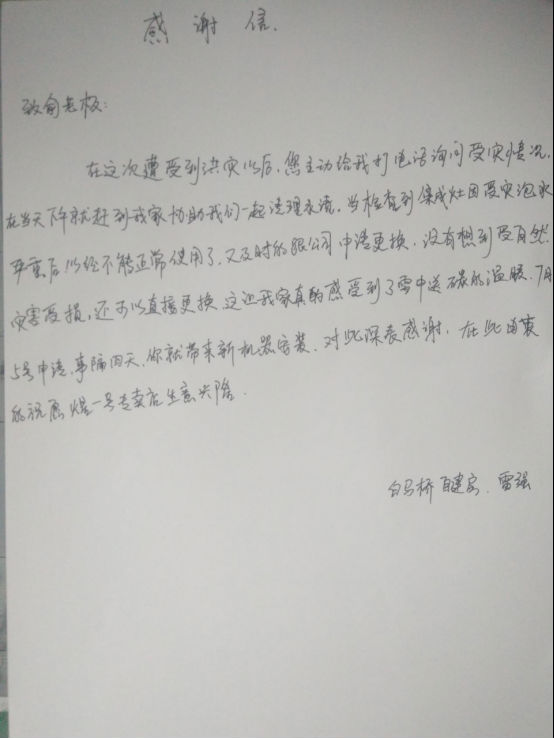 感谢信.
致俞老板:
在这次遭受到洪灾以后,您主动给我打电话询问受灾情况,
在当天下午就赶到我家协助我们一起清理衣流。当检查到集成灶因受灾泡水
严重后以经不能正常使用了,又及时的跟公司申请更换,没有想到受自然
灾害受损,还可以直接更换.这让我家真的感受到了雪中送碳的温暖.7月
5号申请,事隔四天,你就带来新机器安装.对此深表感谢,在此由衷
的祝愿 煜一号专卖店生意兴隆.
白马桥自建房.雷强